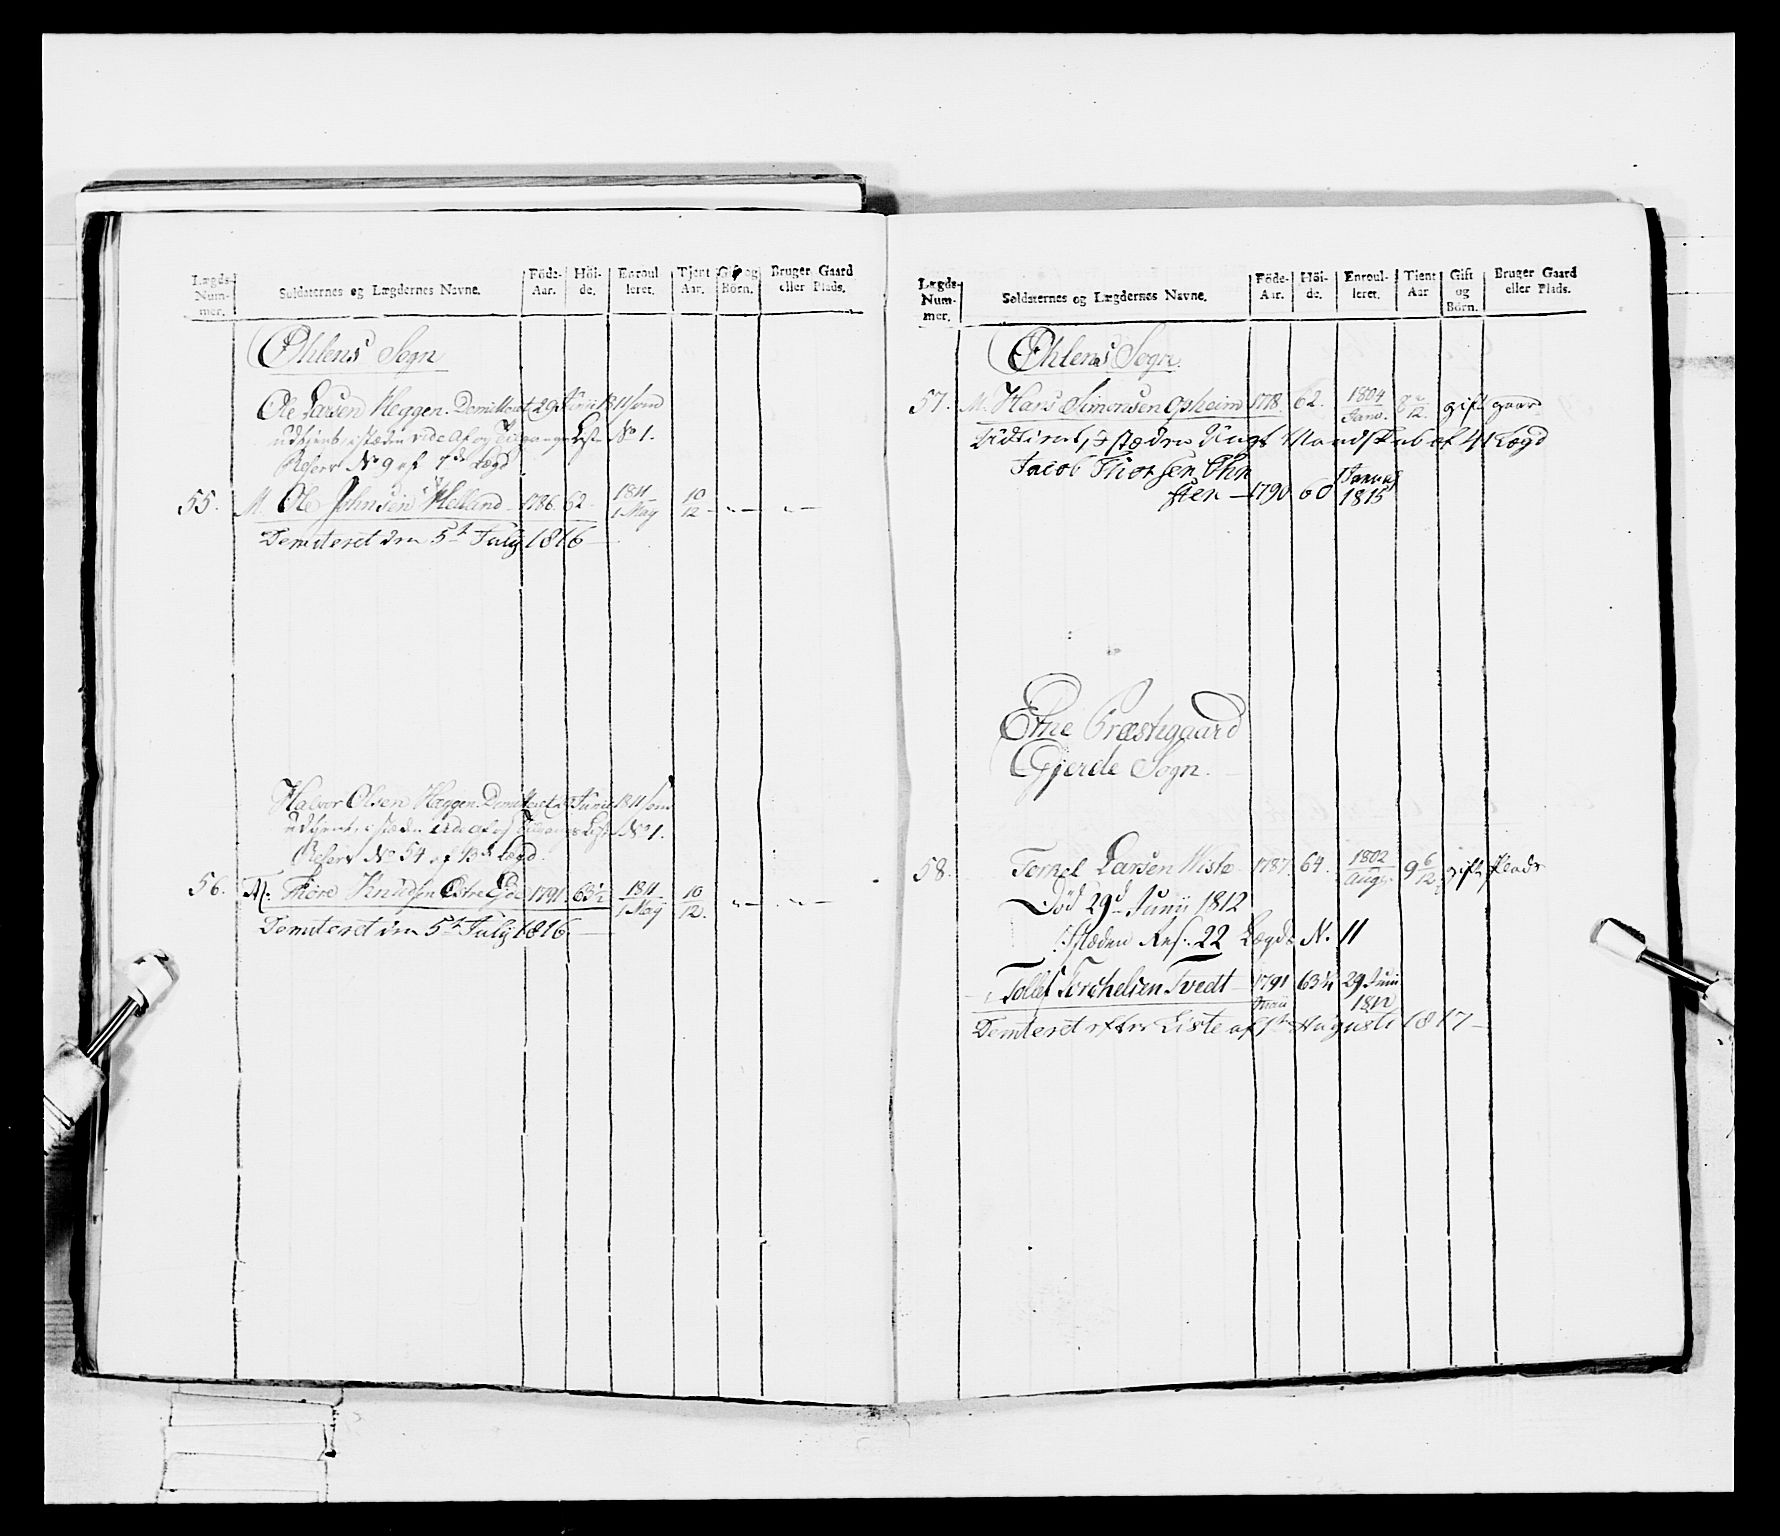 Lægds-Num-mer. Soldaternes og Lægdernes Navne. Föde-Aar. Höi-de. Enroul leret. Tjent Aar. Gift og Börn. Bruger Gaard eller Plads.
Øhlens Sogn
Ole Larsen Heggen. Demitteret 29 Junii 1811 som
udtjent, istæden vide Af og Tilgangs Liste No 1.
Reserv No 9 af 7de Lægd
55. M. Ole Johnsen Helland 1786. 62. 1811 1 May 10/12 - " - " -
Demiteret den 5te July 1816
Halvor Olsen Heggen. Demitteret 29 Junii 1811 som
udtjent, istæden vide Af og Tilgangs Liste No 1.
Reserv No 54 af 13de Lægd.
56. M. Thore Knudsen Østre Eide 1791. 63½ 1811 1 May 10/12. - " - " -
Demiteret den 5te July 1816.
Lægds-Num-mer. Soldaternes og Lægdernes Navne. Föde-Aar. Höi-de. Enroul-leret. Tient Aar Gift og Börn. Bruger Gaard eller Plads.
Øhlens Sogn.
57. M. Hans Simonsen Opheim 1778. 62. 1804 Janv. 8 /12. gift gaard
Udtient, I stæden Ungt Mandskab af 41 Lægd
Jacob Thorsen
sten - 1790 60 1 Januar 1815
Etne Præstegaard
Gjerde Sogn.
58. Torkel Larsen Miste 1787. 64. 1802 Aug. 9 6/12 gift Plads
Død 29d Junii 1812
I stæden Res: 22 Lægds N. 11
Tollef Torchelsen Tvedt - 1791 63¼ 29 Junii
1812
Demiteret efter Liste af 1te Augusti 1817 -